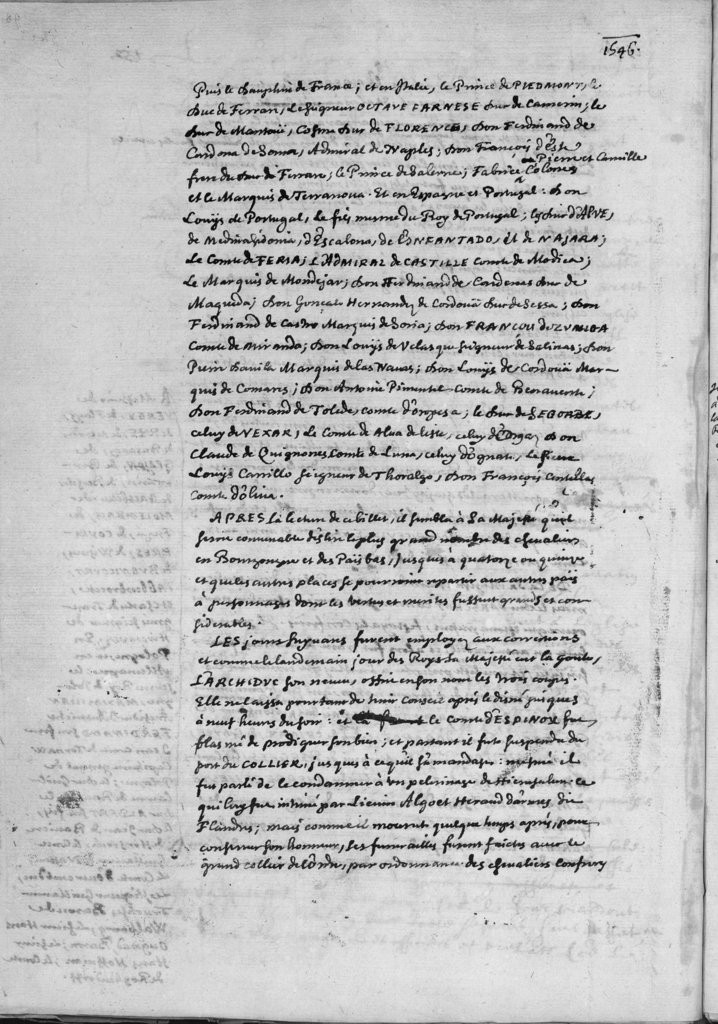 1546.
Puis le Dauphin de France; et en Italie, le Prince de PIEDMONT, le
Duc de Ferrare, le Seigneur OCTAVE FARNESE Duc de Camerin; le
Duc de Mantoüe, Cosme Duc de FLORENCE, Don Ferdinand de
Cardona de Soma, Admiral de Naples; Don François d'Este
frere du Duc de Ferrare; le Prince de Salerne; Fabrice Colones
et Pierre et Camille
et le Marquis de Terranoua. Et en Espagne et Portugal: Don
Louijs de Portugal, le fils du Roy de Portugal; les Duc d'ALVE,
de Medinasidonia, d'Escalona, de L'ENFANTADO, et de NAJARA;
Le Comte de FERIA; L'ADMIRAL de CASTILLE Comte de Modica;
Le Marquis de Mondejar; Don Ferdinand de Cardenas Duc de
Maqueda; Don Gonçalo Hernandez de Cordoüa Duc de Sessa; Don
Ferdinand de Castro Marquis de Soria; Don FRANÇOIS de ZUNIGA
Comte de Miranda; Don Louijs de Velasque Seigneur de Salinas; Don
Pierre Dauila Marquis de las Nauas; Don Louijs de Cordoüa Mar-
quis de Comares; Don Antoine Pimentel Comte de Benauente;
Don Ferdinand de Tolede, comte d'Oropesa; le Duc de SEGORBE,
celuy de VEXAR, le Comte de Alua de Liste, celuy Don
Claude de Quignones Comte de Luna, celuy d'Ognate, le Sieur
Louijs Carrillo Seigneur de Thoralgo, Don François Centellas
Comte d'Oliua.
APRES la lecture de ce billet, il sembla à Sa Majesté qu'il
seroit conuenable d'eslire le plus grand nombre des cheualiers
en Bourgongne et des Païsbas, jusques à quatorze ou quinze
et que les autres places se pourroient repartir aux autres païs
à personnages dont les vertus et merites fussent grands et con-
siderables.
LES jours suyuans furent employez aux corrections
et comme le landemain jour des Roys Sa Majesté eut la goute,
L'ARCHIDUC son neueu, offrit en son nom les trois coupes.
Elle ne laissa pourtant de tenir Conseil après le disné jusques
à neuf heures du soir: et le Comte D'ESPINOY fut
blasmé de prodiguer son bien; et partant il fut suspendu du
port du COLLIER, jusques à ce qu'il s'amandast: mesme il
fut parlé de le condamner à vn pelerinage de Hierusalem: ce
qui luy fut intimé par Lieuin Algoet Heraud d'armes de
Flandres; mais comme il mourut quelque temps après, pour
conseruer son honneur, ses funerailles furent faictes auec le
grand collier de l'ordre, par ordonnance des cheualiers confrery